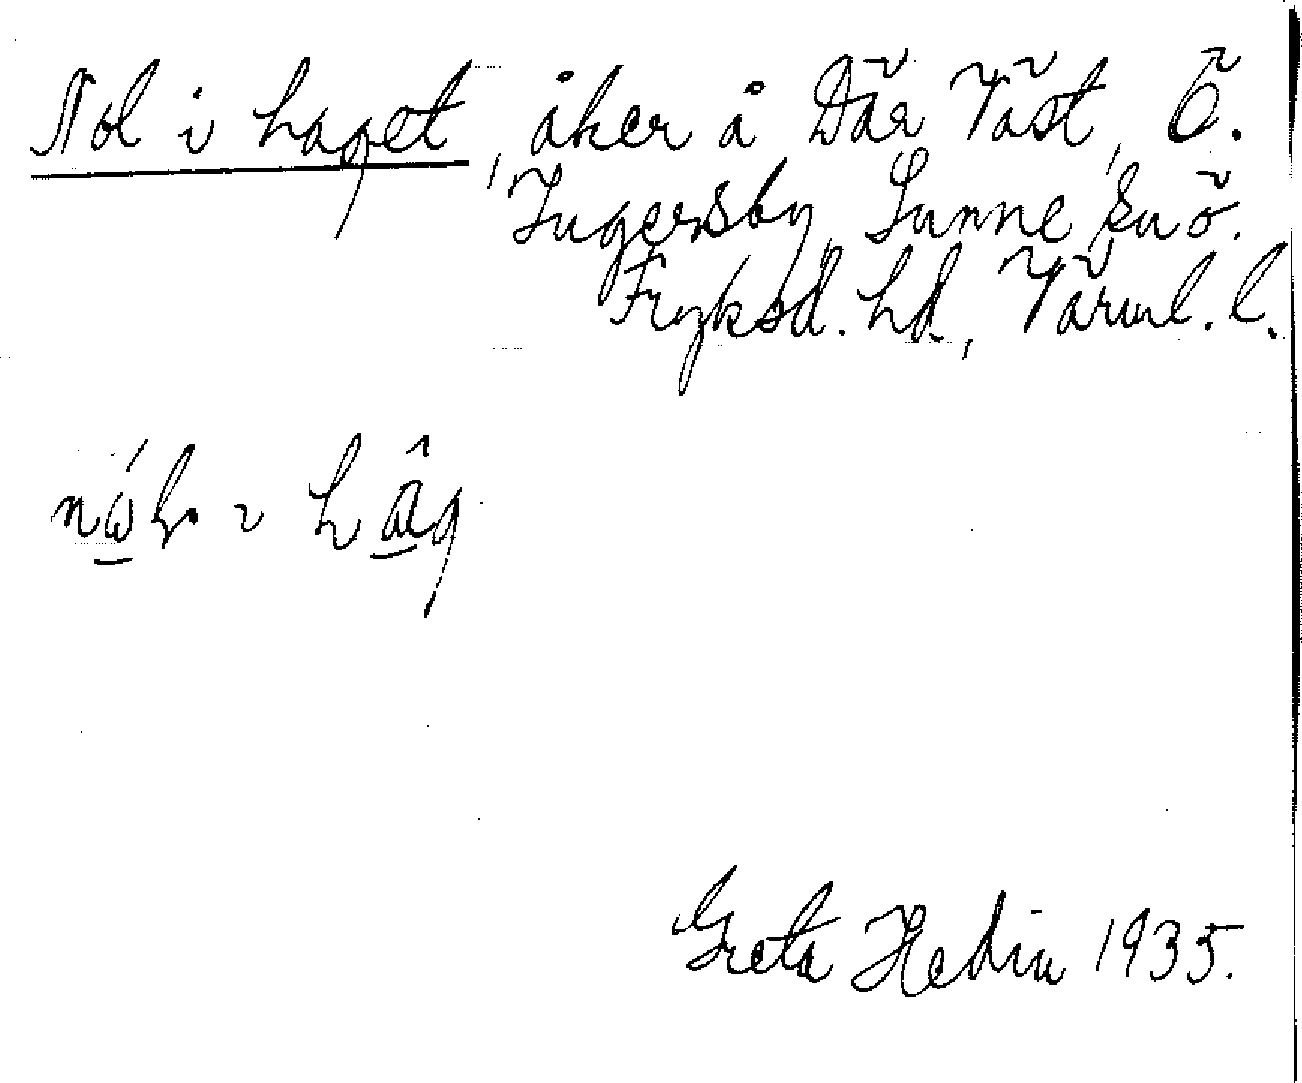 Nol i haget, åker å Där Väst, Ö.
Ingersby, Sunne sn ö.
Fryksd. hd., Värml. l.
hâg
Greta Hedin 1935.